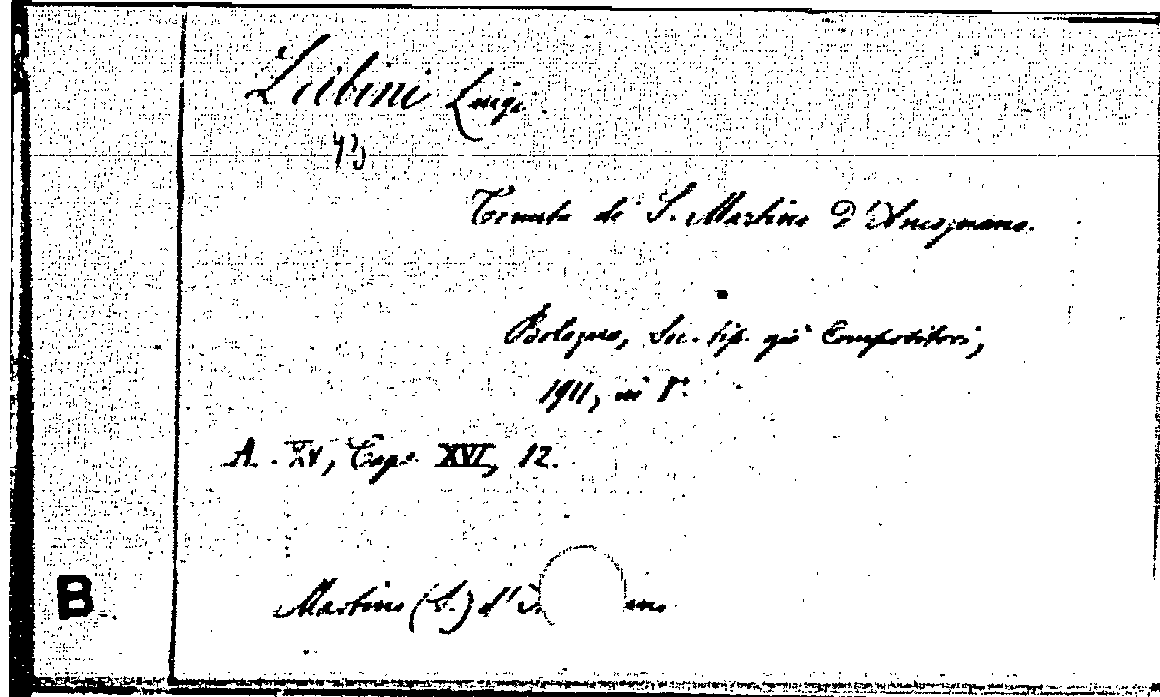 Zubini Luigi.
Tenuta di S. Martino d'Ancognano.
Bologna, Soc. tip. già Compositori,
1911, in 8°.
A. IV, Cap. XVI, 12.
B
Martino (S.) d'